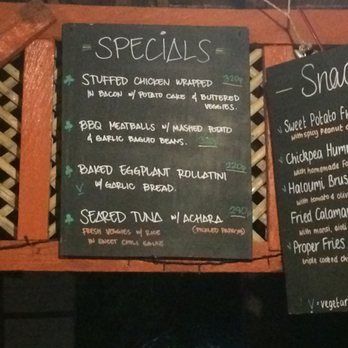 = SPECIALS =
STUFFED CHICKEN WRAPPED 320p
IN BACON W/ POTATO CAKE & BUTTERED
VEGGIES.
BBQ MEATBALLS W/ MASHED POTATO
& GARLIC BAGUIO BEANS.
BAKED EGGPLANT ROLLATINI 220p
V W/ GARLIC BREAD.
SEARED TUNA W/ ACHARA 290p
FRESH VEGGIES W/ RICE (PICKLED PAPAYA)
IN SWEET CHILI SAUCE
- Sna
√ Sweet Potato F
with spicy peanut
√ Chickpea Humm
with homemade
√ Haloumi Brus
with tomato & oliv
Fried Calamar
with mansi, aioli
√ Proper Fries
triple cooked ch
√ = vegetar